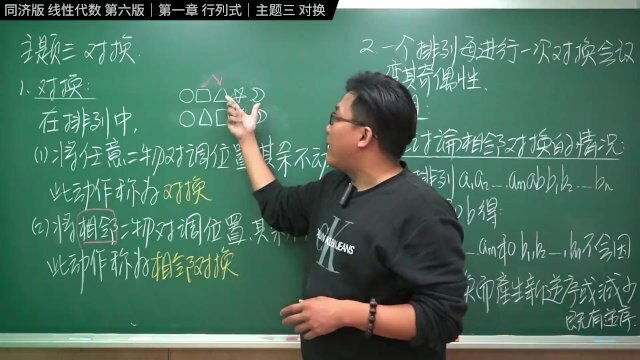 同济版 线性代数 第六版｜第一章 行列式｜主题三 对换
主題三 对换
1. 对换:
在排列中,
(1) 将任意二物对调位置,其余不动
此动作称为对换
(2) 将相邻二物对调位置,其余
此动作称为相邻对换
2. 一个排列再进行一次对换会议
变其奇偶性.
讨论相邻对换的情况:
排列 a₁a₂…aₙabb₁b₂…bₙ
b得:
b₁b₂…
不会因
换而產生新逆序或減少
已有逆序
CK
JEANS